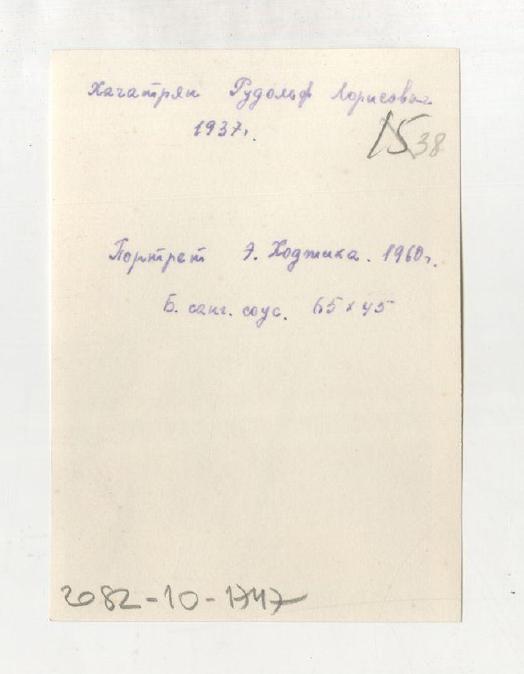 Хачатрян Рудольф Лорисович
1937г.
15 38
Портрет Э. Ходжика. 1960г.
Б. санг. соус. 65 x 45
2082-10-1747